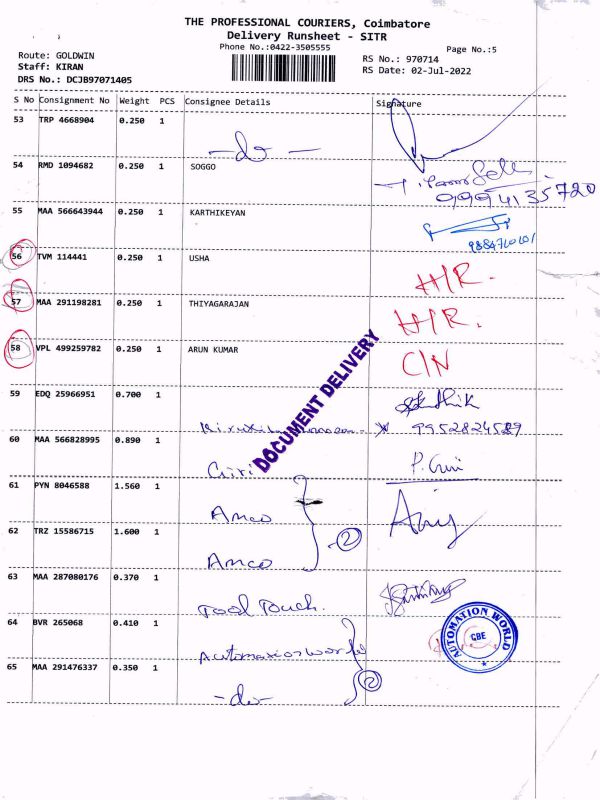 THE PROFESSIONAL COURIERS, Coimbatore
Delivery Runsheet - SITR
Phone No.:0422-3505555
Page No.:5
Route: GOLDWIN
Staff: KIRAN
DRS No.: DCJB97071405
RS No.: 970714
RS Date: 02-Jul-2022
S No Consignment No Weight PCS Consignee Details Signature
53 TRP 4668904 0.250 1
-do-
54 RMD 1094682 0.250 1 SOGGO
9994135720
55 MAA 566643944 0.250 1 KARTHIKEYAN
56 TVM 114441 0.250 1 USHA H/R.
57 MAA 291198281 0.250 1 THIYAGARAJAN H/R.
58 VPL 499259782 0.250 1 ARUN KUMAR C/N
DOCUMENT DELIVERY
59 EDQ 25966951 0.700 1
60 MAA 566828995 0.890 1
Giri P. Giri
61 PYN 8046588 1.560 1
Amco
62 TRZ 15586715 1.600 1
Amco
2
63 MAA 287080176 0.370 1
Tool Touch.
64 BVR 265068 0.410 1
AUTOMATION WORLD
CBE
65 MAA 291476337 0.350 1
-do-
2